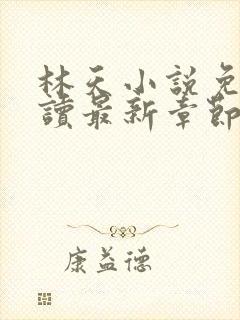 林天小說免
讀最新章節
康益德